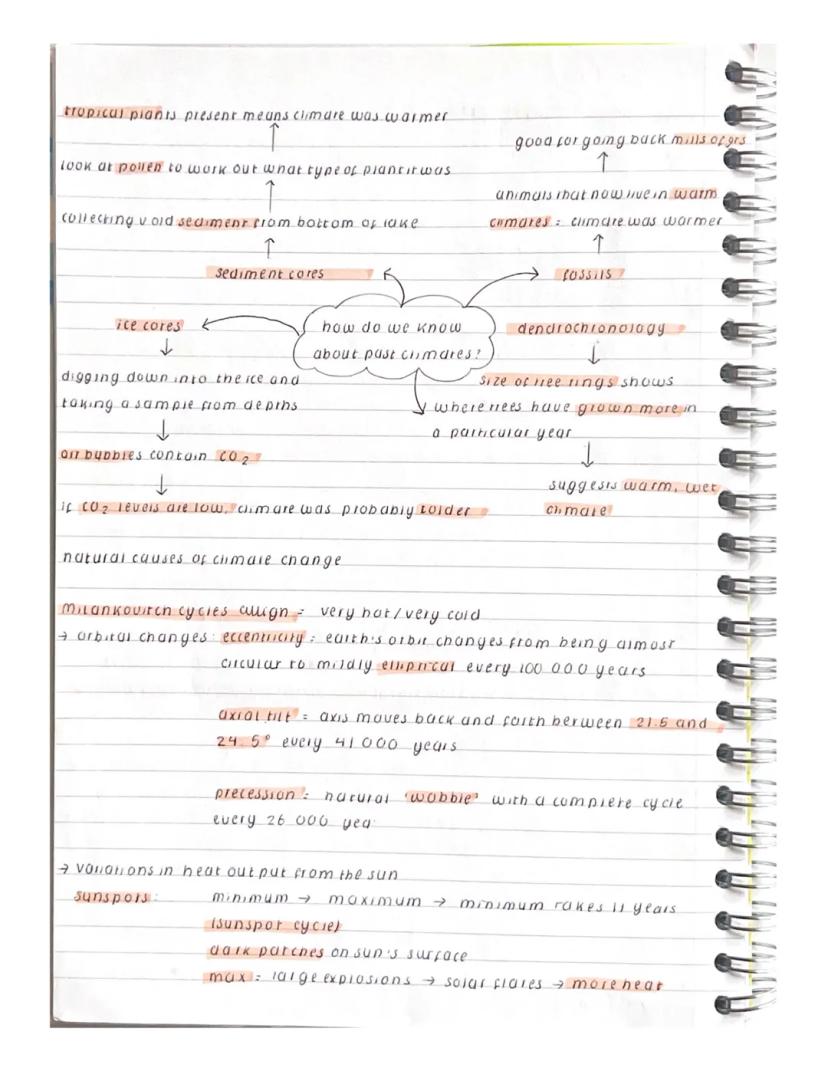 tropical plants present means climate was warmer
good for going back mills of yrs
look at pollen to work out what type of plant it was
animals that now live in warm
collecting void sediment from bottom of lake
climates = climate was warmer
sediment cores
fossils
ice cores
how do we know
about past climates?
dendrochronology
digging down into the ice and
taking a sample from depths
size of tree rings shows
where trees have grown more in
a particular year
air bubbles contain CO2
suggests warm, wet
climate
if CO2 levels are low, climate was probably colder
natural causes of climate change
Milankovitch cycles allign = very hot/very cold
→ orbital changes: eccentricity = earth's orbit changes from being almost
circular to mildly elliptical every 100 000 years
axial tilt = axis moves back and forth between 21.5 and
24.5° every 41 000 years
precession = natural 'wobble' with a complete cycle
every 26 000 yea
→ variations in heat output from the sun
sunspots: minimum → maximum → minimum takes 11 years
(sunspot cycle)
dark patches on sun's surface
max = large explosions → solar flares → more heat